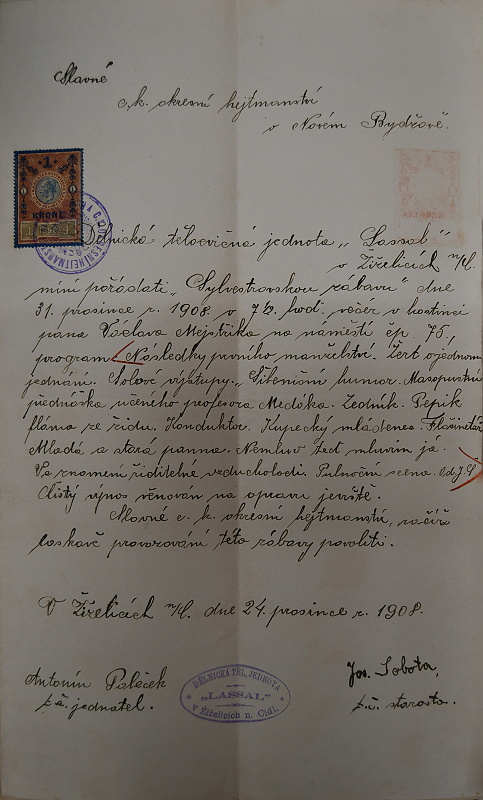 Slavné
c.k. okresní hejtmanství
v Novém Bydžově.
1
KRONE
C.K. OKRESNÍ HEJTMAN
Dělnická tělocvičná jednota „Lassal"
v Žiželicích n/C.
míní pořádati „Sylvestrovskou zábavu" dne
31. prosince r. 1908 v 7½ hod. večer v hostinci
pana Václava Mejstříka na náměstí čp. 75,
program: Následky prvního manželství. Žert o jednom
jednání. Solové výstupy. „Šibeniční humor. Masopustní
přednáška učeného profesora Medáka. Zedník. Pepík
flána ze řídu. Konduktor. Kupecký mládenec. Flašinetář
Mladá a stará panna. Nemluv teď mluvím já.
Ve znamení řiditelné vzducholodi. Půlnoční scéna. Od J. Š.
Čistý výnos věnován na opravu jeviště.
Slavné c. k. okresní hejtmanství, račiž
laskavě provozování této zábavy povoliti.
V Žiželicích n/C. dne 24. prosince r. 1908.
Antonín Paleček
t.č. jednatel.
DĚLNICKÁ TĚL. JEDNOTA
„LASSAL"
V Žiželicích n. Cidl.
Jos. Sobota,
t.č. starosta.